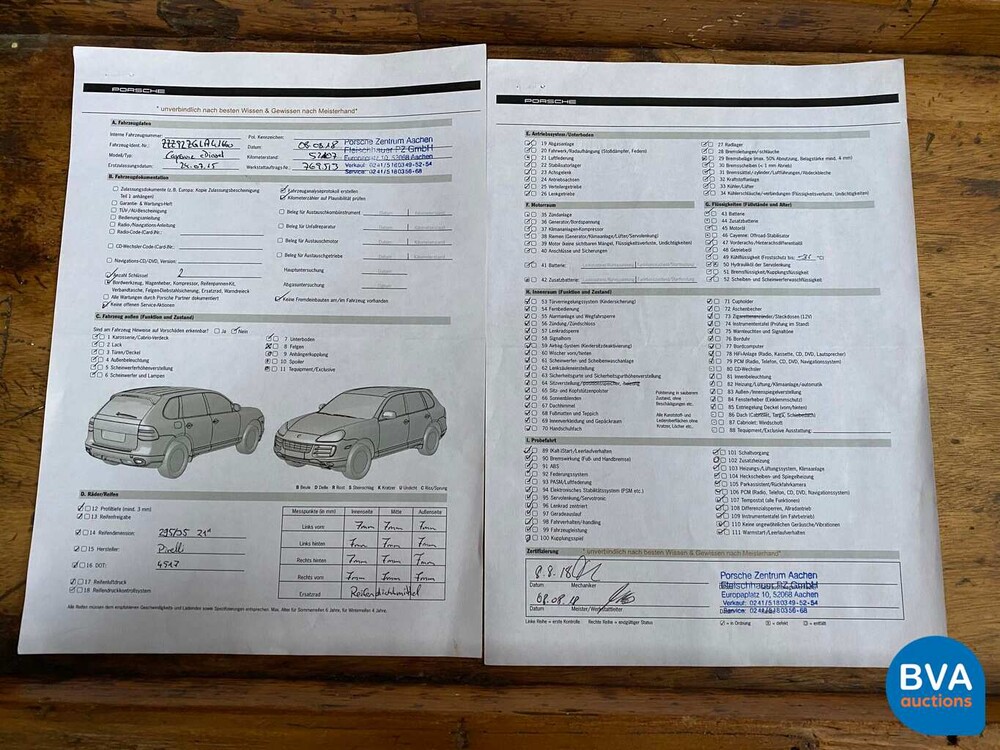 PORSCHE
" unverbindlich nach besten Wissen & Gewissen nach Meisterhand"
A. Fahrzeugdaten
Interne Fahrzeugnummer:
Pol. Kennzeichen:
Fahrzeug-Ident. Nr.:
Datum: 08.08.18
Modell/Typ: Cayenne Diesel
Kilometerstand:
Erstzulassungsdatum: 24.07.15
Werkstattauftrags-Nr.:
Porsche Zentrum Aachen
Fleischhauer PZ GmbH
Europaplatz 10, 52068 Aachen
Verkauf: 0241/5180349-52-54
Service: 0241/5180358-68
B. Fahrzeugdokumentation
Zulassungsdokumente (z.B. Europa: Kopie Zulassungsbescheinigung
Teil 1 anhängen)
Garantie- & Wartungs-Heft
TÜV-/AU-Bescheinigung
Bedienungsanleitung
Radio-/Navigations-Anleitung
Radio-Code-(Card-)Nr.:
CD-Wechsler-Code-(Card-)Nr.:
Navigations-CD/DVD, Version:
Anzahl Schlüssel 2
Bordwerkzeug, Wagenheber, Kompressor, Reifenpannen-Kit,
Verbandtasche, Felgen-Diebstahlsicherung, Ersatzrad, Warndreieck
Alle Wartungen durch Porsche Partner dokumentiert
Keine offenen Service-Aktionen
Fahrzeuganalyseprotokoll erstellen
Kilometerzähler auf Plausibilität prüfen
Beleg für Austauschkombiinstrument
Beleg für Unfallreparatur
Beleg für Austauschmotor
Beleg für Austauschgetriebe
Hauptuntersuchung
Abgasuntersuchung
Keine Fremdeinbauten am/im Fahrzeug vorhanden
C. Fahrzeug außen (Funktion und Zustand)
Sind am Fahrzeug Hinweise auf Vorschäden erkennbar? Ja Nein
1 Karosserie/Cabrio-Verdeck
2 Lack
3 Türen/Deckel
4 Außenbeleuchtung
5 Scheinwerferhöhenverstellung
6 Scheinwerfer und Lampen
7 Unterboden
8 Felgen
9 Anhängerkupplung
10 Spoiler
11 Tequipment/Exclusive
B Beule D Delle R Rost S Steinschlag K Kratzer U Unsicht C Riss/Sprung
D. Räder/Reifen
12 Profiltiefe (mind. 3 mm)
13 Reifenfreigabe
14 Reifendimension: 295/35 21"
15 Hersteller: Pirelli
16 DOT: 4517
17 Reifenluftdruck
18 Reifendruckkontrollsystem
Messpunkte (in mm) Innenseite Mitte Außenseite
Links vorn 7mm 7mm 7mm
Links hinten 7mm 7mm 7mm
Rechts hinten 7mm 7mm 7mm
Rechts vorn 7mm 7mm 7mm
Ersatzrad Reifendichtmittel
Alle Reifen müssen dem empfohlenen Geschwindigkeits- und Lastindex sowie Spezifizierungen entsprechen. Max. Alter für Sommerreifen 6 Jahre, für Winterreifen 4 Jahre.
PORSCHE
E. Antriebssystem/Unterboden
19 Abgasanlage
20 Fahrwerk/Radaufhängung (Stoßdämpfer, Federn)
21 Luftfederung
22 Stabilisatorlager
23 Achsgelenk
24 Antriebsachsen
25 Verteilergetriebe
26 Lenkgetriebe
27 Radlager
28 Bremsleitungen/schläuche
29 Bremsbeläge (max. 50% Abnutzung, Belagstärke mind. 4 mm)
30 Bremsscheiben (< 1 mm Abrieb)
31 Bremssättel/zylinder/Luftführungen/Abdeckbleche
32 Kraftstoffanlage
33 Kühler/Lüfter
34 Kühlerschläuche/verbindungen (Flüssigkeitsverluste, Undichtigkeiten)
F. Motorraum
35 Zündanlage
36 Generator/Bordspannung
37 Klimaanlagen-Kompressor
38 Riemen (Generator/Klimaanlage/Lüfter/Servolenkung)
39 Motor (keine sichtbaren Mängel, Flüssigkeitsverluste, Undichtigkeiten)
40 Anschlüsse und Sicherungen
41 Batterie:
42 Zusatzbatterie:
G. Flüssigkeiten (Füllstände und Alter)
43 Batterie
44 Zusatzbatterie
45 Motoröl
46 Cayenne: Offroad-Stabilisator
47 Vorderachs-/Hinterachsdifferential
48 Getriebeöl
49 Kühlflüssigkeit (Frostschutz bis
50 Hydrauliköl der Servolenkung
51 Bremsflüssigkeit/Kupplungsflüssigkeit
52 Scheiben- und Scheinwerferwaschanlage
H. Innenraum (Funktion und Zustand)
53 Türverriegelungssystem (Kindersicherung)
54 Fernbedienung
55 Alarmanlage und Wegfahrsperre
56 Zündung/Zündschloss
57 Lenkradsperre
58 Signalhorn
59 Airbag-System (Kindersitzdeaktivierung)
60 Wischer vorn/hinten
61 Scheinwerfer- und Scheibenwaschanlage
62 Lenksäuleneinstellung
63 Sicherheitsgurte und Sicherheitsgurthöhenverstellung
64 Sitzverstellung/positionsspeicher, -heizung
65 Sitz- und Kopfstützenpolster
66 Sonnenblenden
67 Dachhimmel
68 Fußmatten und Teppich
69 Innenverkleidung und Gepäckraum
70 Handschuhfach
Polsterung in sauberem
Zustand, ohne
Beschädigungen etc.
Alle Kunststoff- und
Lederoberflächen ohne
Kratzer, Löcher etc.
71 Cupholder
72 Aschenbecher
73 Zigarettenanzünder/Steckdosen (12V)
74 Instrumententafel (Prüfung im Stand)
75 Warnleuchten und Signaltöne
76 Borduhr
77 Bordcomputer
78 HiFi-Anlage (Radio, Kassette, CD, DVD, Lautsprecher)
79 PCM (Radio, Telefon, CD, DVD, Navigationssystem)
80 CD-Wechsler
81 Innenbeleuchtung
82 Heizung/Lüftung/Klimaanlage/automatik
83 Außen-/Innenspiegelverstellung
84 Fensterheber (Einklemmschutz)
85 Entriegelung Deckel (vorn/hinten)
86 Dach (Cabriolet, Targa, Schiebedach)
87 Cabriolet: Windschott
88 Tequipment/Exclusive Ausstattung:
I. Probefahrt
89 (Kalt-)Start-/Leerlaufverhalten
90 Bremswirkung (Fuß- und Handbremse)
91 ABS
92 Federungssystem
93 PASM/Luftfederung
94 Elektronisches Stabilitätssystem (PSM etc.)
95 Servolenkung/Servotronic
96 Lenkrad zentriert
97 Geradeauslauf
98 Fahrverhalten/handling
99 Fahrzeugleistung
100 Kupplungsspiel
101 Schaltvorgang
102 Zusatzheizung
103 Heizungs-/Lüftungssystem, Klimaanlage
104 Heckscheiben- und Spiegelheizung
105 Parkassistent/Rückfahrkamera
106 PCM (Radio, Telefon, CD, DVD, Navigationssystem)
107 Tempostat (alle Funktionen)
108 Differenzialsperren, Allradantrieb
109 Instrumententafel (im Fahrbetrieb)
110 Keine ungewöhnlichen Geräusche/Vibrationen
111 Warmstart-/Leerlaufverhalten
Zertifizierung " unverbindlich nach besten Wissen & Gewissen nach Meisterhand"
8.8.18
Datum Mechaniker
08.08.18
Datum Meister/Werkstattleiter
Porsche Zentrum Aachen
Fleischhauer PZ GmbH
Europaplatz 10, 52068 Aachen
Verkauf: 0241/5180349-52-54
Service: 0241/5180358-68
Linke Reihe = erste Kontrolle Rechte Reihe = endgültiger Status
= in Ordnung = defekt = entfällt
BVA
auctions